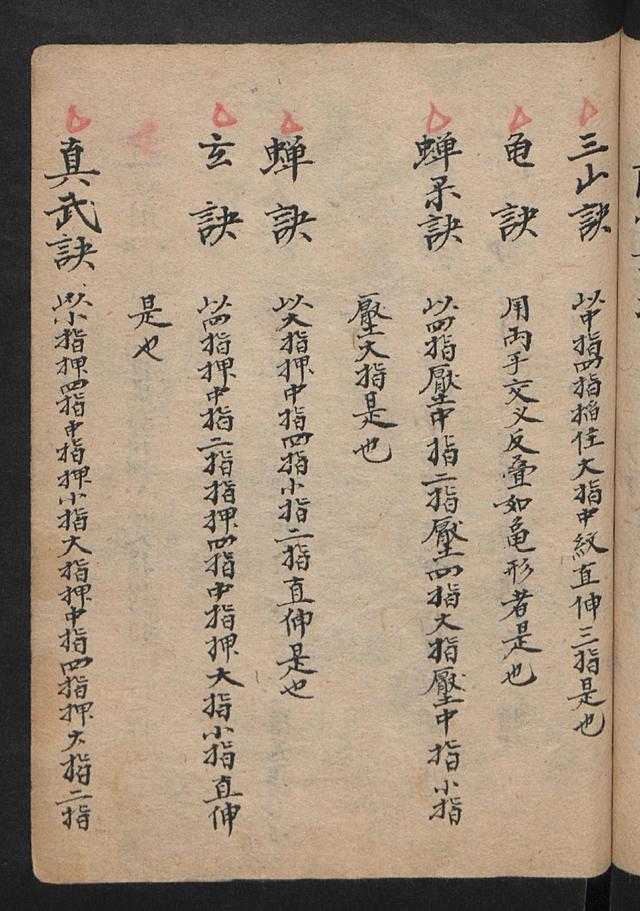 三山訣 以中指四指掐住大指中紋直伸三指是也
龟訣 用两手交义反叠如亀形者是也
蝉杀訣 以四指壓中指二指壓四指大指壓中指小指
壓大指是也
蝉訣 以大指押中指四指小指二指直伸是也
玄訣 以四指押中指二指指押四指中指押大指小指直伸
是也
真武訣 以小指押四指中指押小指大指押中指四指押大指二指